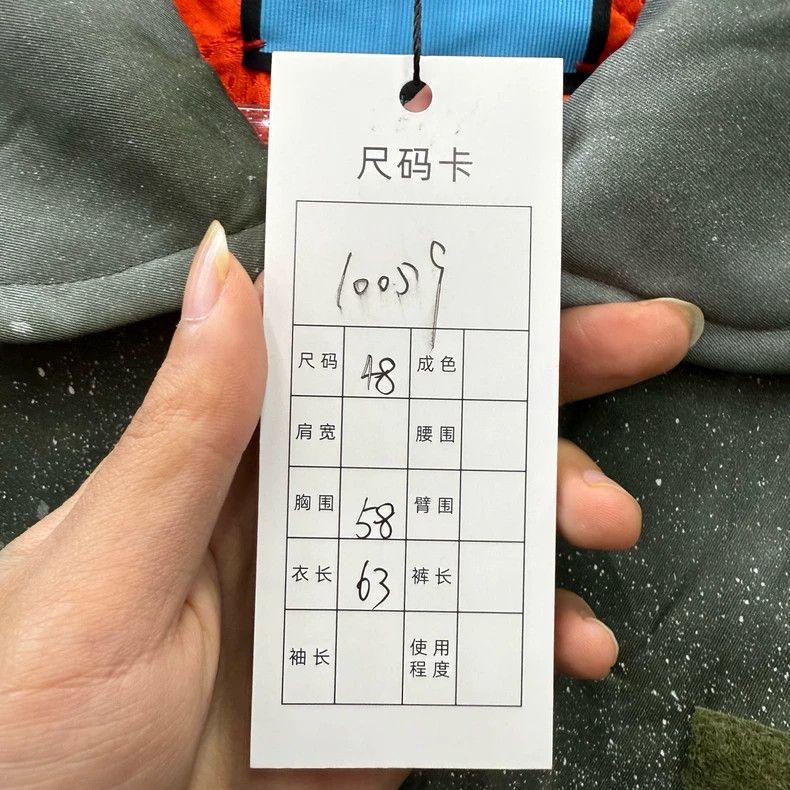 尺码卡
10059
尺码 48 成色
肩宽 腰围
胸围 58 臂围
衣长 63 裤长
袖长 使用
程度